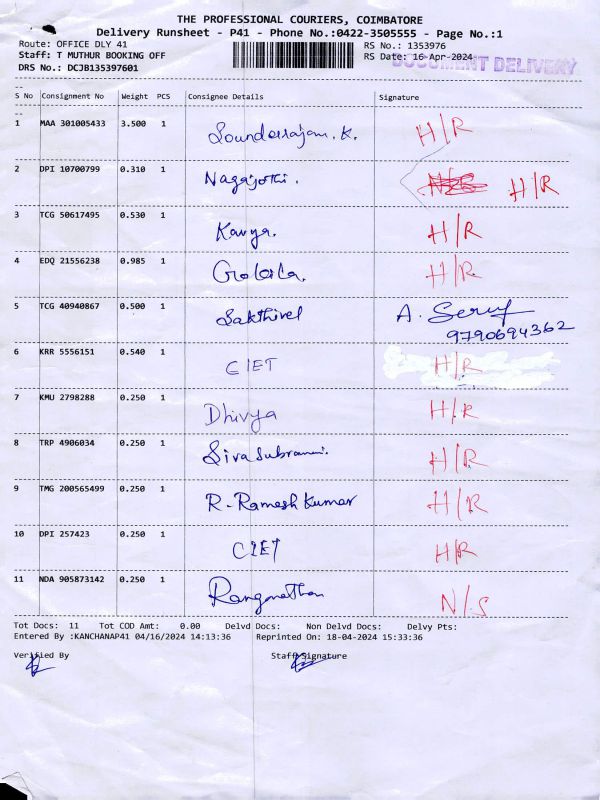 THE PROFESSIONAL COURIERS, COIMBATORE
Delivery Runsheet - P41 - Phone No.:0422-3505555 - Page No.:1
Route: OFFICE DLY 41 RS No.: 1353976
Staff: T MUTHUR BOOKING OFF RS Date: 16-Apr-2024
DOCUMENT DELIVERY
DRS No.: DCJB135397601
S No Consignment No Weight PCS Consignee Details Signature
1 MAA 301005433 3.500 1 Sounderrajan. K. H/R
2 DPI 10700799 0.310 1 Nagajothi. H/R
3 TCG 50617495 0.530 1 Kavya. H/R
4 EDQ 21556238 0.985 1 H/R
5 TCG 40940867 0.500 1 Sakthivel A.
9790694362
6 KRR 5556151 0.540 1 CIET H/R
7 KMU 2798288 0.250 1 Dhivya H/R
8 TRP 4906034 0.250 1 H/R
9 TMG 200565499 0.250 1 R. Ramesh Kumar H/R
10 DPI 257423 0.250 1 CIET H/R
11 NDA 905873142 0.250 1 Ranganathan N/S
Tot Docs: 11 Tot COD Amt: 0.00 Delvd Docs: Non Delvd Docs: Delvy Pts:
Entered By :KANCHANAP41 04/16/2024 14:13:36 Reprinted On: 18-04-2024 15:33:36
Verified By Staff Signature